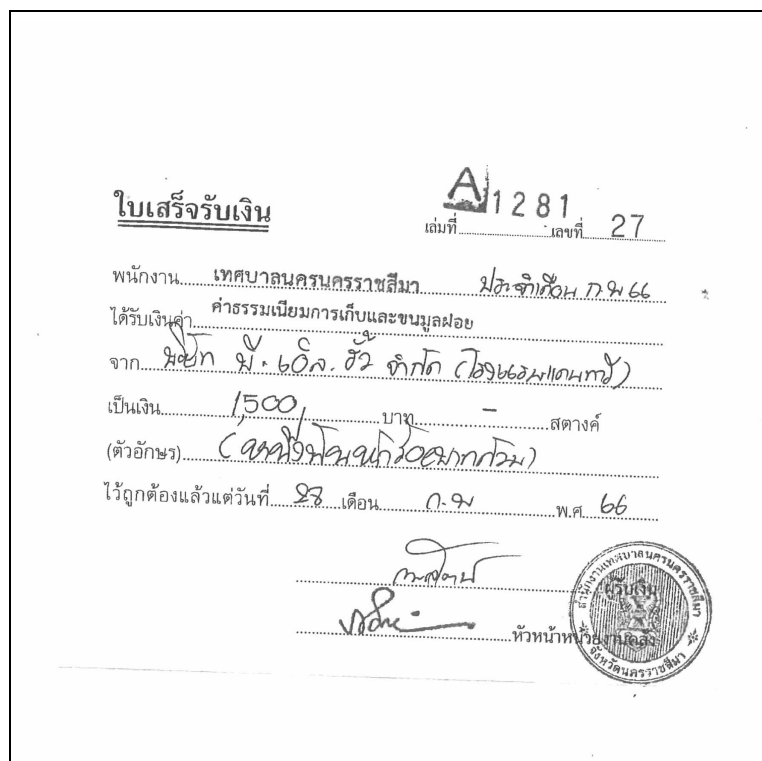 ใบเสร็จรับเงิน
A 1281
เล่มที่ เลขที่ 27
พนักงาน เทศบาลนครนครราชสีมา ประจำเดือน ก.พ 66
ได้รับเงินค่า ค่าธรรมเนียมการเก็บและขนมูลฝอย
จาก บริษัท พี.เอิล.ฮั้ว จำกัด (โรงแรมแดนทวี)
เป็นเงิน 1,500 บาท - สตางค์
(ตัวอักษร) (หนึ่งพันห้าร้อยบาทถ้วน)
ไว้ถูกต้องแล้วแต่วันที่ 28 เดือน ก.พ พ.ศ. 66
ผู้รับเงิน
หัวหน้าหน่วยงานคลัง
สำนักงานเทศบาลนครนครราชสีมา
จังหวัดนครราชสีมา